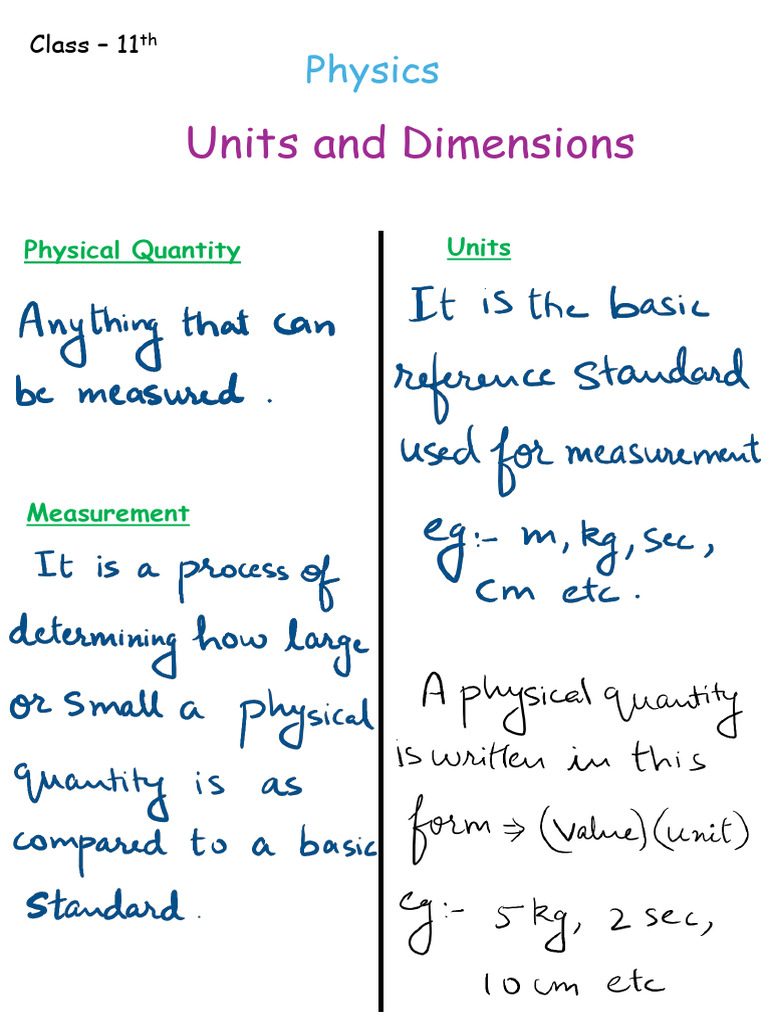 Class – 11th
Physics
Units and Dimensions
Physical Quantity
Anything that can
be measured.
Measurement
It is a process of
determining how large
or small a physical
quantity is as
compared to a basic
standard.
Units
It is the basic
reference standard
used for measurement
eg:- m, kg, sec,
cm etc.
A physical quantity
is written in this
form ⇒ (value)(unit)
eg:- 5 kg, 2 sec,
10 cm etc